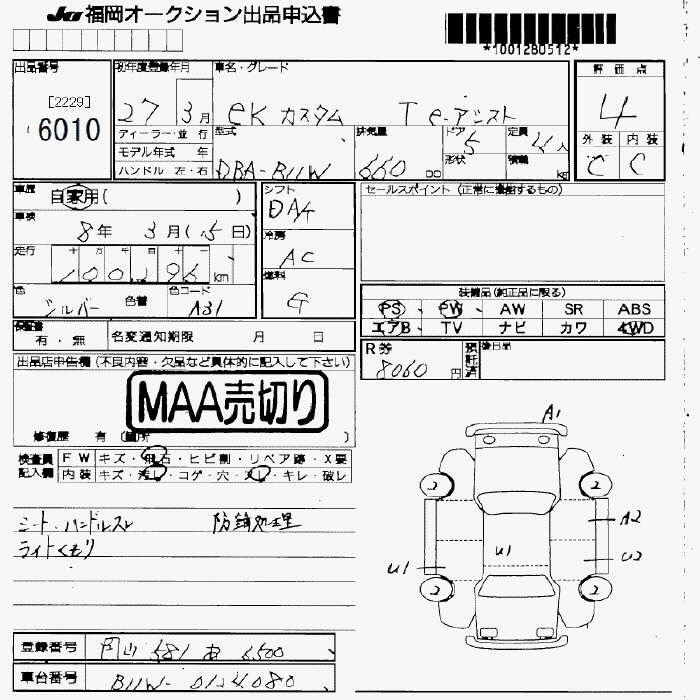 JU 福岡オークション出品申込書
*1001280512*
出品番号 初年度登録年月 車名・グレード 評価点
[2229]
6010
27 3月 eKカスタム T e-アシスト 4
ディーラー・並行 型式 排気量 ドア 定員 外装 内装
モデル年式 年 5 4人 C C
ハンドル 左・右 DBA-B11W 660 cc 形状 積載 kg
車歴 自家用( ) シフト セールスポイント (正常に作動するもの)
車検 8年 3月(15日) DA4
走行 十 万 千 百 十 一 冷房
100196 km AC
色 シルバー 色替 色コード A31 燃料 G
装備品(純正品に限る)
PS PW AW SR ABS
エアB TV ナビ カワ 4WD
検査書 有・無 名変通知期限 月 日
R券 8060円 預託済 後日品
出品店申告欄 (不良内容・欠品など具体的に記入して下さい)
MAA売切り
修復歴 有 (箇所 )
検査員 FW キズ・飛石・ヒビ割・リペア跡・X要
記入欄 内装 キズ・汚レ・コゲ・穴・スレ・キレ・破レ
シート・ハンドルスレ 防錆処理
ライトくもり
A1
2 2
A2
U1 U1 U2
2 2
登録番号 岡山 581 あ 6500
車台番号 B11W-0124080